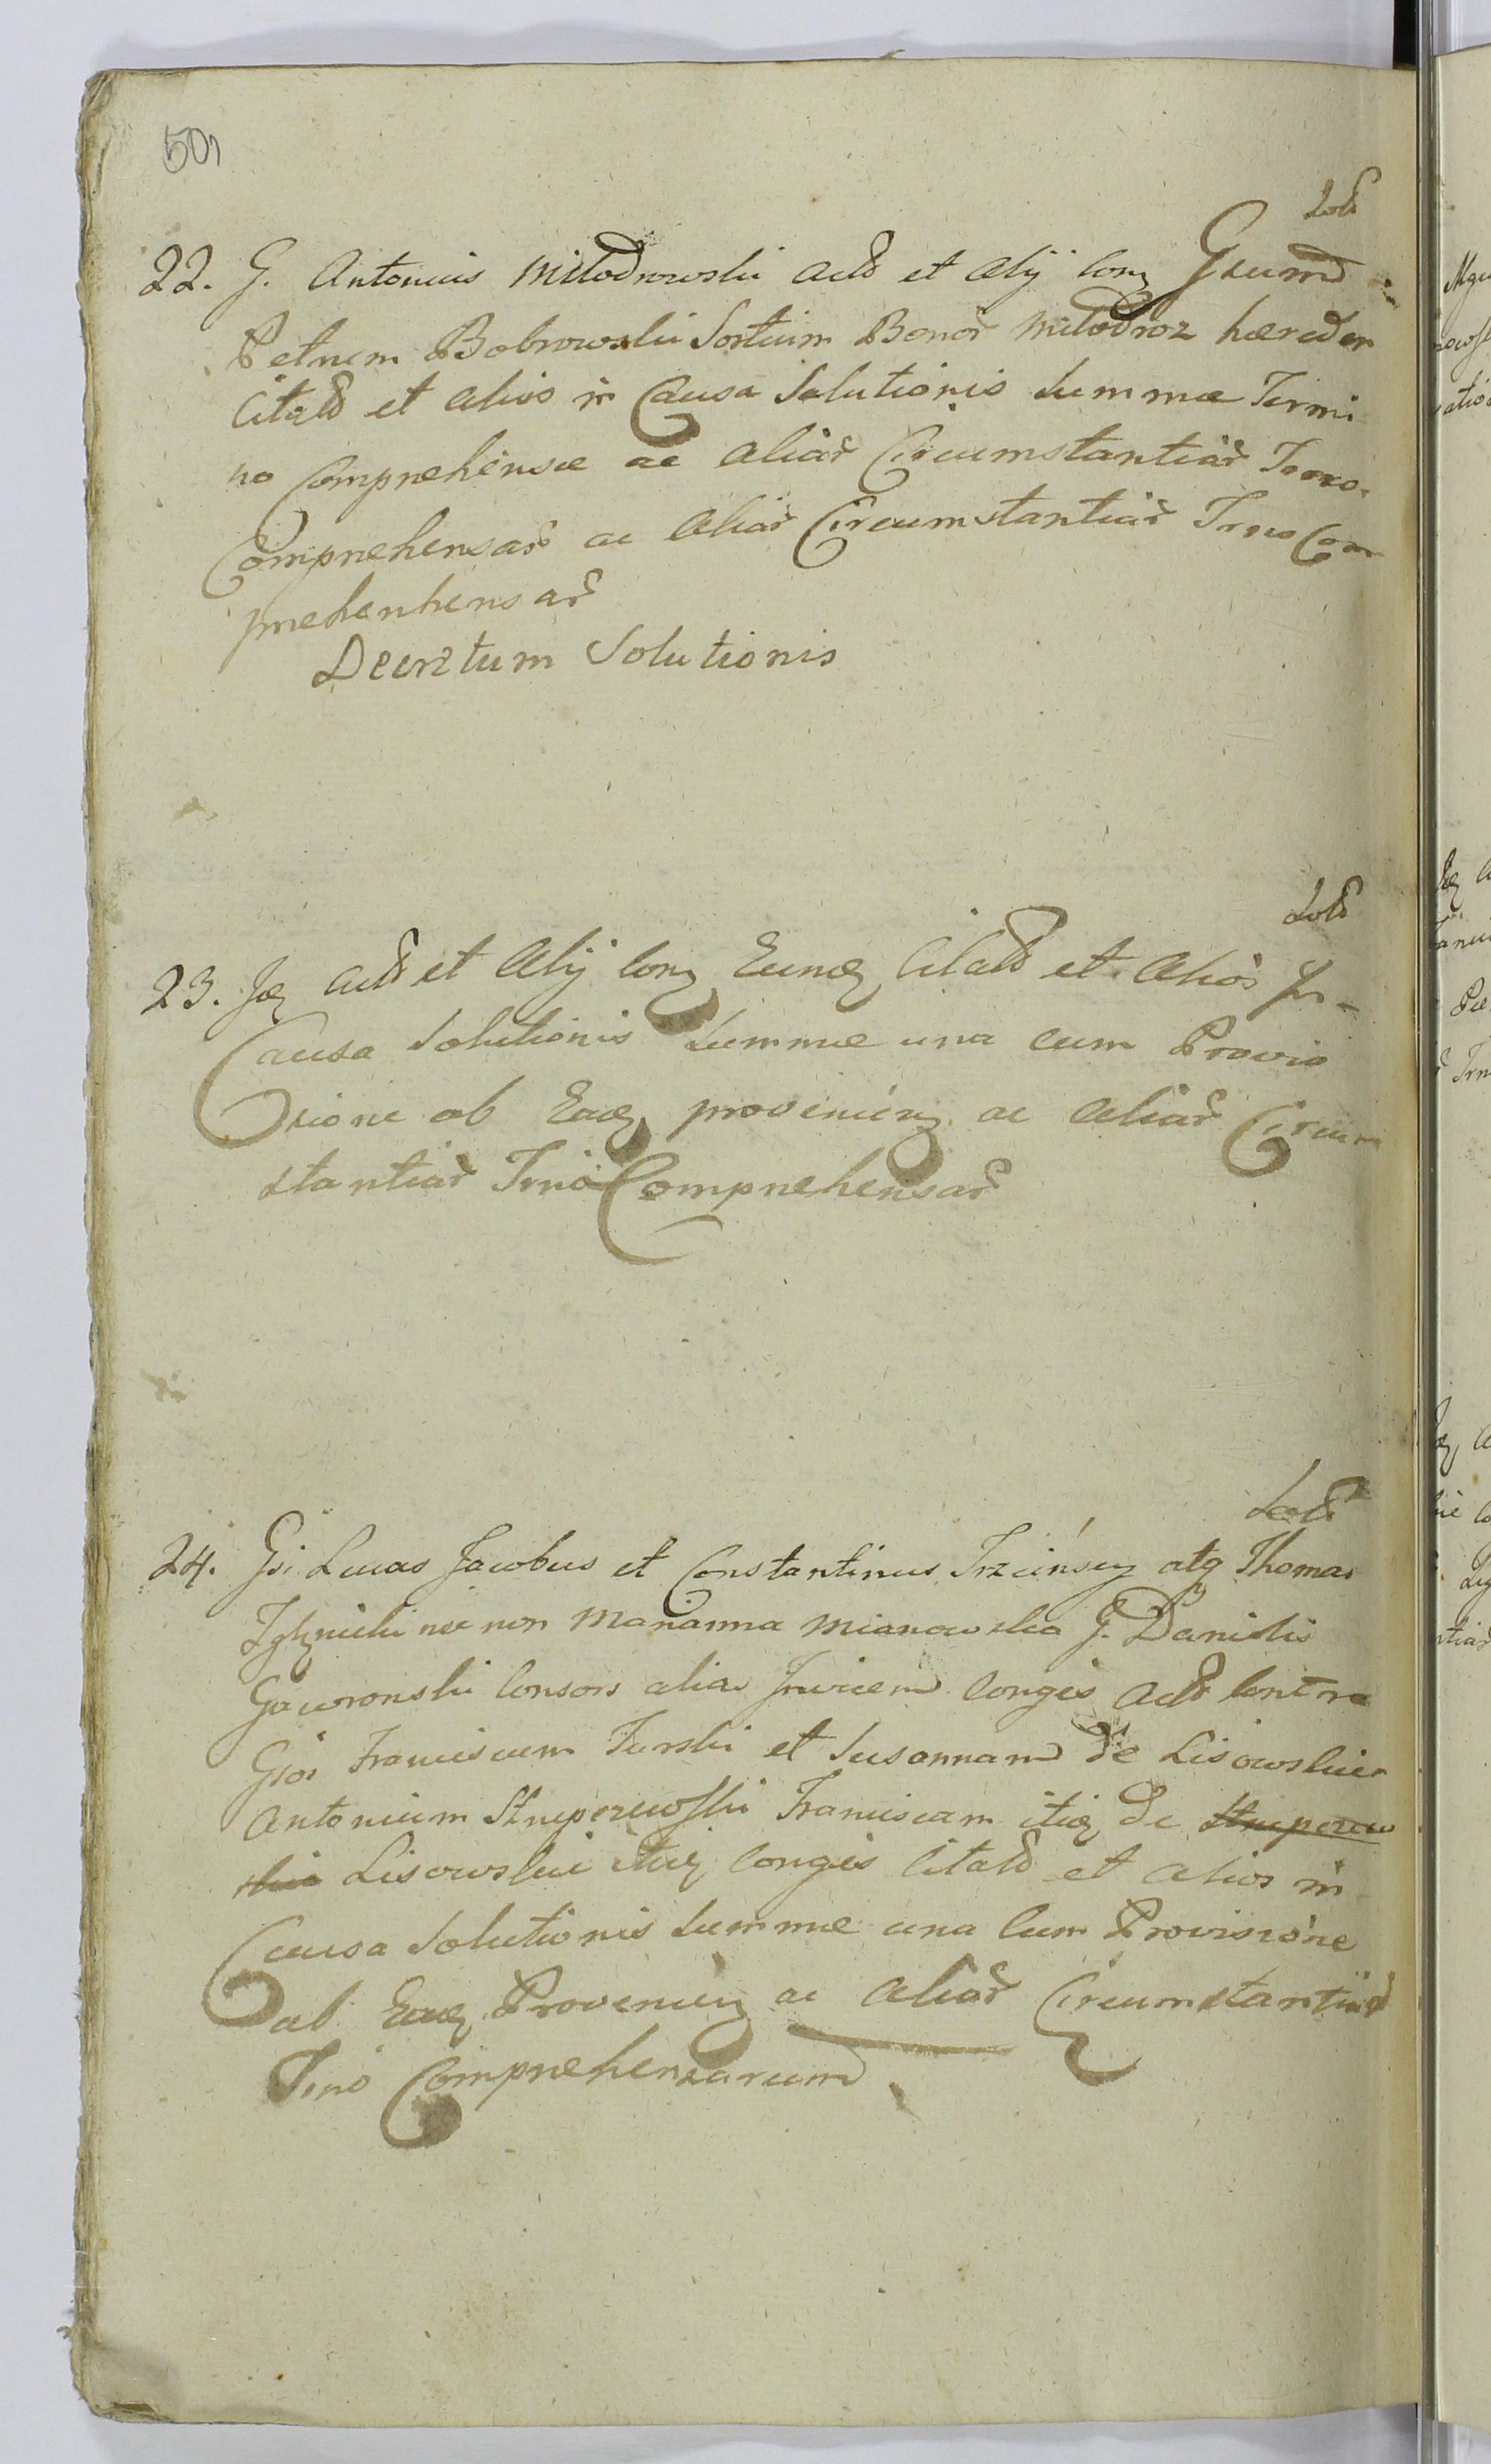 501
22. G. Antonius Miłodrowski Actt et Alij Conq Gsum
Petrum Bobrowski Sortium Bonor Miłodroz hæreden
Citatt et Alios in Causa Solutionis Summæ Termi
no Comprehensæ ac Aliar Circumstantiar Trno
Comprehensar ac Aliar Circumstantiar Trno Com
prehenhensar
Decretum Solutionis
23. Jq Actt et Alij Conq Eunq Citatt et Alios in
Causa Solutionis Summæ una cum Provis
sione ab Eaq provenienq ac Aliar Circum
stantiar Trno Comprehensar
24. Gsi Lucas Jacobus et Constantinus Trzcinscy atq Thomas
nec non Marianna Mianowska G. Danielis
Gaworonski Consors alias Invicem Conges Actt Contra
Gsos Franciscum Turski et Susannam de Lisowskie
Antonium Strupczewski Franciscam itiq de Strupczew
skie Lisowskie itiq Conges Citatt et Alios in
Causa Solutionis Summæ una Cum Provisione
ab Eaq Provenienq ac Aliar Circumstantiar
Trno Comprehensarum